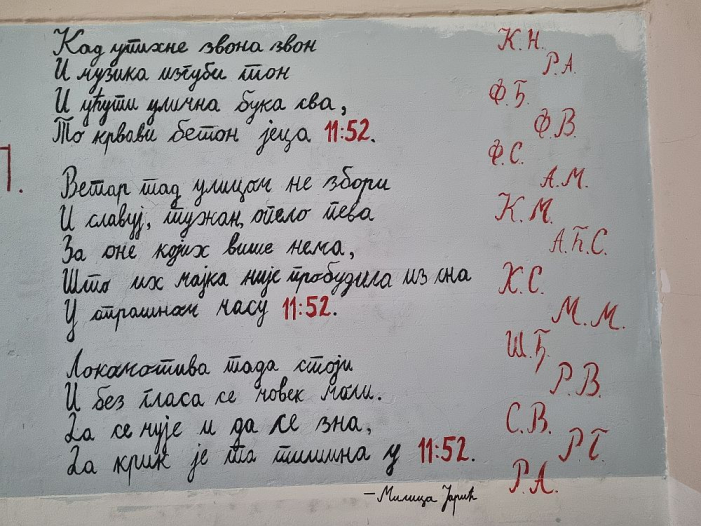 Кад утихне звона звон
И музика изгуби тон
И ућути улична бука сва,
То крвави бетон јеца 11:52.
Ветар тад улицом не збори
И славуј, тужан, опело пева
За оне којих више нема,
Што их мајка није пробудила из сна
У страшном часу 11:52.
Локомотива тада стоји
И без гласа се човек моли.
Да се чује и да се зна,
Да крик је та тишина у 11:52.
– Милица Јарић
К.Н.
Р.А.
Ф.Ђ.
Ф.В.
Ф.С.
А.М.
К.М.
А.Ћ.С.
Х.С.
М.М.
Ш.Ђ.
Р.В.
С.В.
Р.Г.
Р.А.